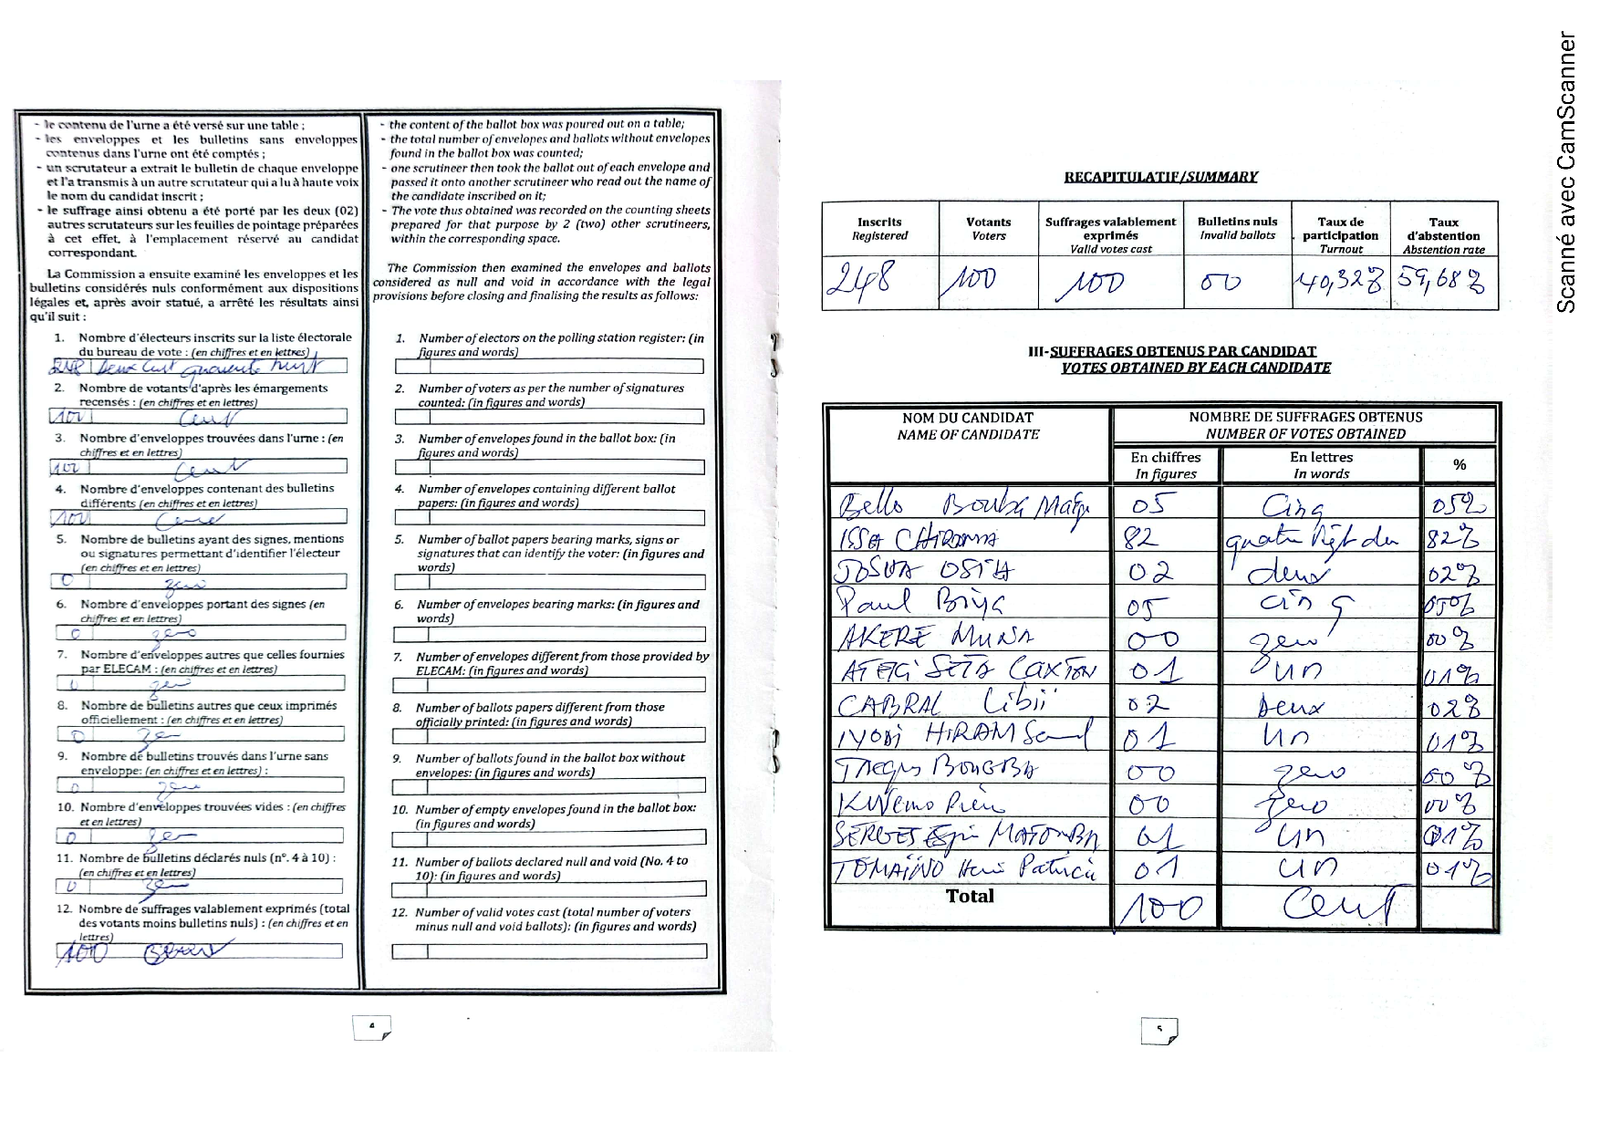 - le contenu de l'urne a été versé sur une table ;
- les enveloppes et les bulletins sans enveloppes
contenus dans l'urne ont été comptés ;
- un scrutateur a extrait le bulletin de chaque enveloppe
et l'a transmis à un autre scrutateur qui a lu à haute voix
le nom du candidat inscrit ;
- le suffrage ainsi obtenu a été porté par les deux (02)
autres scrutateurs sur les feuilles de pointage préparées
à cet effet, à l'emplacement réservé au candidat
correspondant.
La Commission a ensuite examiné les enveloppes et les
bulletins considérés nuls conformément aux dispositions
légales et, après avoir statué, a arrêté les résultats ainsi
qu'il suit :
1. Nombre d'électeurs inscrits sur la liste électorale
du bureau de vote : (en chiffres et en lettres)
248 Deux Cent quarante huit
2. Nombre de votants d'après les émargements
recensés : (en chiffres et en lettres)
100 Cent
3. Nombre d'enveloppes trouvées dans l'urne : (en
chiffres et en lettres)
100 Cent
4. Nombre d'enveloppes contenant des bulletins
différents (en chiffres et en lettres)
100 Cent
5. Nombre de bulletins ayant des signes, mentions
ou signatures permettant d'identifier l'électeur
(en chiffres et en lettres)
0 zero
6. Nombre d'enveloppes portant des signes (en
chiffres et en lettres)
0 zero
7. Nombre d'enveloppes autres que celles fournies
par ELECAM : (en chiffres et en lettres)
0 zero
8. Nombre de bulletins autres que ceux imprimés
officiellement : (en chiffres et en lettres)
0 zero
9. Nombre de bulletins trouvés dans l'urne sans
enveloppe: (en chiffres et en lettres) :
0 zero
10. Nombre d'enveloppes trouvées vides : (en chiffres
et en lettres)
0 zero
11. Nombre de bulletins déclarés nuls (n°. 4 à 10) :
(en chiffres et en lettres)
0 zero
12. Nombre de suffrages valablement exprimés (total
des votants moins bulletins nuls) : (en chiffres et en
lettres)
100
- the content of the ballot box was poured out on a table;
- the total number of envelopes and ballots without envelopes
found in the ballot box was counted;
- one scrutineer then took the ballot out of each envelope and
passed it onto another scrutineer who read out the name of
the candidate inscribed on it;
- The vote thus obtained was recorded on the counting sheets
prepared for that purpose by 2 (two) other scrutineers,
within the corresponding space.
The Commission then examined the envelopes and ballots
considered as null and void in accordance with the legal
provisions before closing and finalising the results as follows:
1. Number of electors on the polling station register: (in
figures and words)
2. Number of voters as per the number of signatures
counted: (in figures and words)
3. Number of envelopes found in the ballot box: (in
figures and words)
4. Number of envelopes containing different ballot
papers: (in figures and words)
5. Number of ballot papers bearing marks, signs or
signatures that can identify the voter: (in figures and
words)
6. Number of envelopes bearing marks: (in figures and
words)
7. Number of envelopes different from those provided by
ELECAM: (in figures and words)
8. Number of ballots papers different from those
officially printed: (in figures and words)
9. Number of ballots found in the ballot box without
envelopes: (in figures and words)
10. Number of empty envelopes found in the ballot box:
(in figures and words)
11. Number of ballots declared null and void (No. 4 to
10): (in figures and words)
12. Number of valid votes cast (total number of voters
minus null and void ballots): (in figures and words)
4
RECAPITULATIF/SUMMARY
Inscrits Votants Suffrages valablement Bulletins nuls Taux de Taux
Registered Voters exprimés Invalid ballots participation d'abstention
Valid votes cast Turnout Abstention rate
248 100 100 00 40,32% 59,68%
III-SUFFRAGES OBTENUS PAR CANDIDAT
VOTES OBTAINED BY EACH CANDIDATE
NOM DU CANDIDAT NOMBRE DE SUFFRAGES OBTENUS
NAME OF CANDIDATE NUMBER OF VOTES OBTAINED
En chiffres En lettres %
In figures In words
Bello Bouba Maïga 05 Cinq 05%
ISSA CHIROMA 82 quatre vigt deu 82%
JOSUA OSIH 02 deux 02%
Paul Biya 05 cinq 05%
AKERE MUNA 00 zero 00%
ATEKI SETA CAXTON 01 un 01%
CABRAL Libii 02 Deux 02%
IYODI HIRAM Samuel 01 Un 01%
BOUGHA 00 zero 00%
KWemo Pierre 00 zero 00%
SERGES Espoir MATOMBA 01 un 01%
TOMAÏNO Patricia 01 un 01%
Total 100 Cent
5
Scanné avec CamScanner